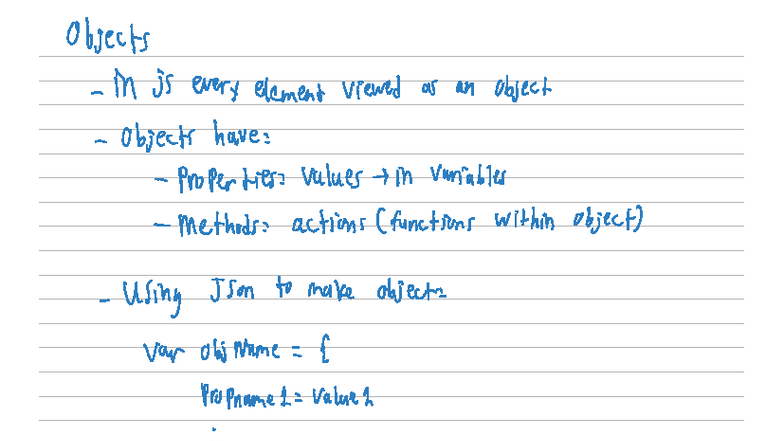 Objects
- In js every element viewed as an object
- Objects have:
- Properties: values → in variables
- Methods: actions (functions within object)
- Using Json to make objects
var objName = {
propname1 = value1